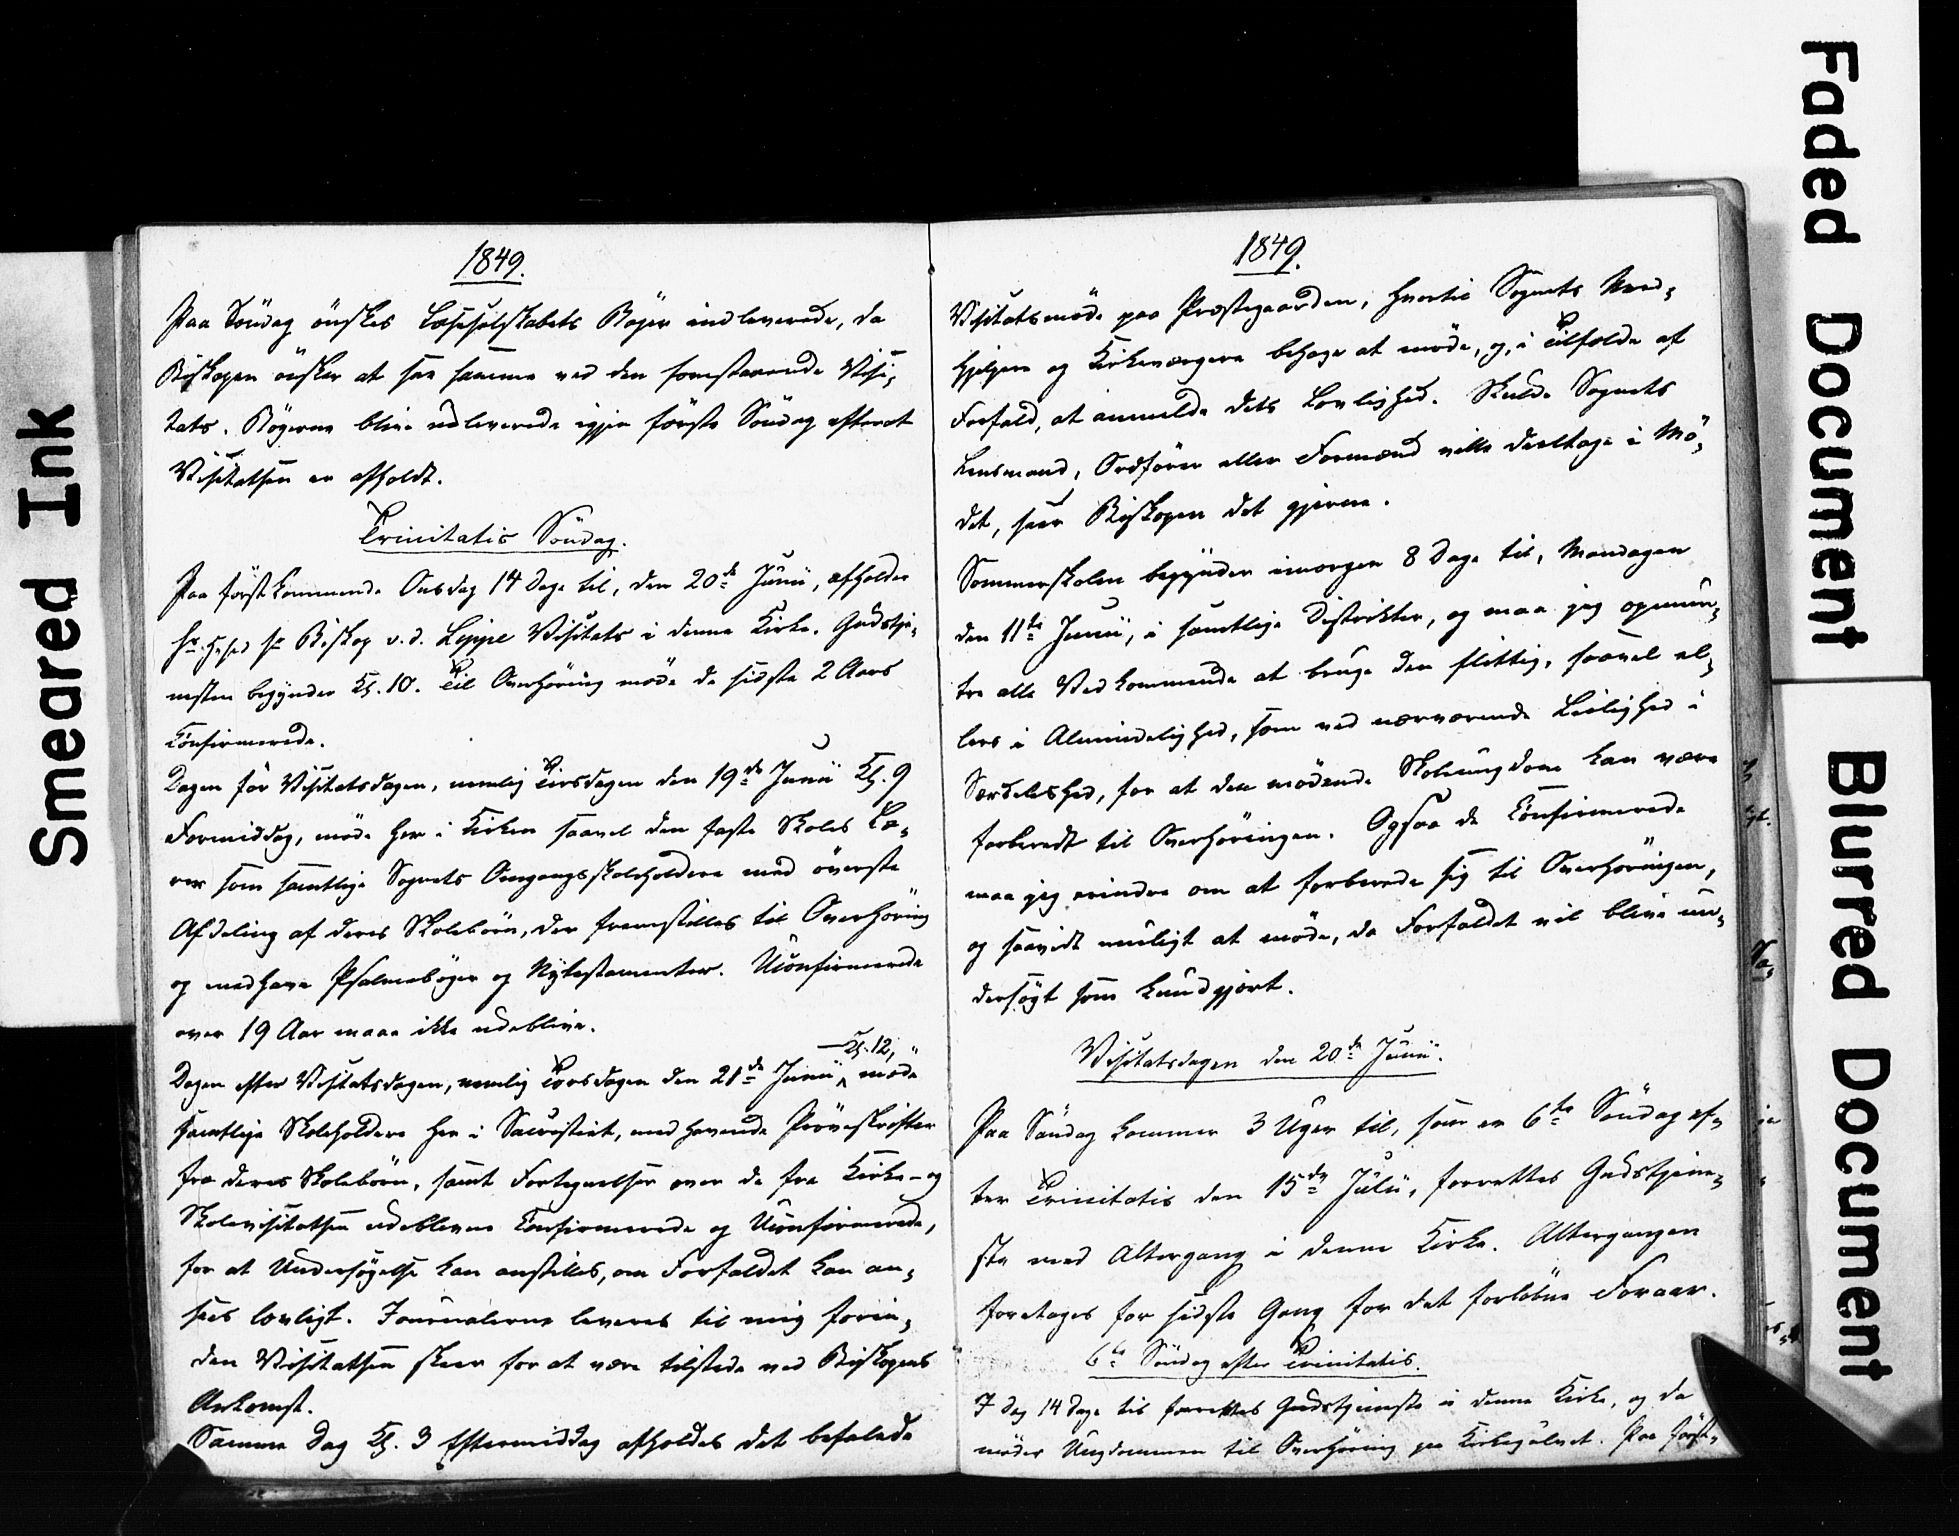 Smeared Ink
Faded Document
Blurred Document
1849.
Paa Söndag önskes Læseselskabets Bøger indleverede, da
Biskopen önsker at see samme ved den forestaaende Visi-
tats. Bøgerne blive udleverede igjen første Söndag efterat
Visitatsen er afholdt.
Trinitatis Söndag.
Paa förstkommende Onsdag 14 Dage til, den 20de Junii, afholder
Hr. Biskop v. d. Lippe Visitats i denne Kirke. Gudstje-
nesten begynder Kl. 10. Til Overhöring möde de sidste 2 Aars
Confirmerede.
Dagen för Visitatsdagen, nemlig Tirsdagen den 19de Junii Kl. 9
Formiddag, möde her i Kirken saavel den faste Skoles Læ-
rer som samtlige Sognets Omgangsskoleholdere med överste
Afdeling af deres Skolebörn, der fremstilles til Overhöring
og medhave Psalmebøger og Nytestamenter. Uconfirmerede
over 19 Aar maae ikke udeblive.
Dagen efter Visitatsdagen, nemlig Torsdagen den 21de Junii, Kl. 12, möde
samtlige Skoleholdere her i Sacristiet, medhavende Pröveskrifter
fra deres Skolebörn, samt Fortegnelser over de fra Kirke- og
Skolevisitatsen udeblevne Confirmerede og Uconfirmerede,
for at Undersøgelse kan anstilles, om Forfaldet kan an-
sees lovligt. Journalerne leveres til mig forin-
den Visitatsen skeer for at være tilstede ved Biskopens
Ankomst.
Samme Dag Kl. 3 Eftermiddag afholdes det befalede
1849.
Visitatsmöde paa Præstegaarden, hvortil Sognets Med-
hjelpere og Kirkeværgere behage at möde, og, i Tilfælde af
Forfald, at anmelde dets Lovlighed. Skulde Sognets
Lensmand, Ordförer eller Formænd ville deeltage i Mö-
det, seer Biskopen det gjerne.
Sommerskolen begynder imorgen 8 Dage til, Mandagen
den 11te Junii, i samtlige Distrikter, og maa jeg opmun-
tre alle Vedkommende at bruge den flittig, saavel el-
lers i Almindelighed, som ved nærværende Leilighed i
Særdeleshed, for at den mödende Skoleungdom kan være
forberedt til Overhöringen. Ogsaa de Confirmerede
maa jeg erindre om at forberede sig til Overhöringen,
og saavidt muligt at möde, da Forfaldet vil blive un-
dersøgt som kundgjort.
Visitatsdagen den 20de Junii.
Paa Söndag kommer 3 Uger til, som er 6te Söndag ef-
ter Trinitatis den 15de Julii, forrettes Gudstjene-
ste med Altergang i denne Kirke. Altergangen
foretages for sidste Gang for det forløbne Foraar.
6te Söndag efter Trinitatis.
I Dag 14 Dage til forrettes Gudstjeneste i denne Kirke, og da
möder Ungdommen til Overhöring paa Kirkegulvet. Paa först-